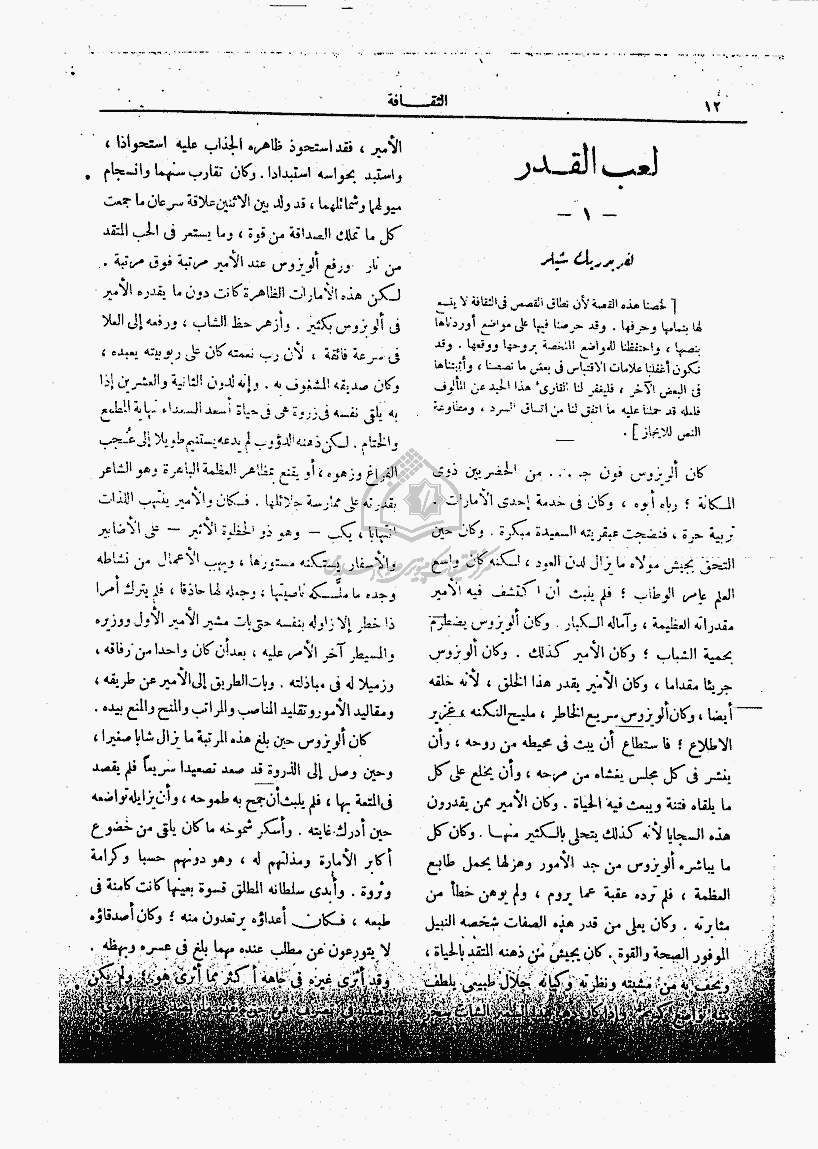 ١٢
الثقافة
لعب القدر
– ١ –
لفريدريك شيلر
[ لخصنا هذه القصة لأن نطاق القصص فى الثقافة لا يتسع
لها بتمامها وحرفها . وقد حرصنا فيها على مواضع أوردناها
بنصها ، واحتفظنا للمواضع الملخصة بروحها ووقعها . وقد
نكون أغفلنا علامات الاقتباس فى بعض ما نصصنا ، وأثبتناها
فى البعض الآخر ، فليغفر لنا القارئ هذا الحيد عن المألوف
فلعله قد حملنا عليه ما اتفق لنا من اتساق السرد ، ومطاوعة
النص للايجاز ] .
كان ألويزوس فون جـ . . . من الحضريين ذوى
المكانة ؛ رباه أبوه ، وكان فى خدمة إحدى الأمارات
تربية حرة ، فنضجت عبقريته السعيدة مبكرة . وكان حين
التحق بجيش مولاه ما يزال لدن العود ، لكنه كان واسع
العلم عامر الوطاب ؛ فلم يلبث أن اكتشف فيه الأمير
مقدراته العظيمة ، وآماله الكبار . وكان ألويزوس يضطرم
بحمية الشباب ؛ وكان الأمير كذلك . وكان ألويزوس
جريئا مقداما ، وكان الأمير يقدر هذا الخلق ، لأنه خلقه
أيضا ، وكان ألويزوس سريع الخاطر ، مليح النكتة ، غزير
الاطلاع ؛ فاستطاع أن يبث فى محيطه من روحه ، وأن
ينشر فى كل مجلس يغشاه من مرحه ، وأن يخلع على كل
ما يلقاه فتنة ويبعث فيه الحياة . وكان الأمير ممن يقدرون
هذه السجايا لأنه كذلك يتحلى بالكثير منها . وكان كل
ما يباشره ألويزوس من جد الأمور وهزلها يحمل طابع
العظمة ، فلم ترده عقبة عما يروم ، ولم يوهن خطأ من
مثابرته . وكان يعلى من قدر هذه الصفات شخصه النبيل
الموفور الصحة والقوة . كان يجيش من ذهنه المتقد بالحياة ،
ويحف به من مشيته ونظرته وكيانه جلال طبيعى يلطف
الأمير ، فقد استحوذ ظاهره الجذاب عليه استحواذا ،
واستبد بحواسه استبدادا . وكان تقارب سنهما وانسجام
ميولهما وشمائلهما ، قد ولد بين الاثنين علاقة سرعان ما جمعت
كل ما تملك الصداقة من قوة ، وما يستعر فى الحب المتقد
من نار . ورفع ألويزوس عند الأمير مرتبة فوق مرتبة .
لكن هذه الأمارات الظاهرة كانت دون ما يقدره الأمير
فى ألويزوس بكثير . وأزهر حظ الشاب ، ورفعه إلى العلا
فى سرعة فائقة ، لأن رب نعمته كان على ربوبيته يعبده ،
وكان صديقه المشغوف به . وإنه لدون الثانية والعشرين إذا
به يلقى نفسه فى ذروة هى فى حياة أسعد السعداء نهاية المطمع
والختام . لكن ذهنه الدؤوب لم يدعه يستنيم طويلا إلى عُجب
الفراغ وزهوه ، أو يقنع بمظاهر العظمة الباهرة وهو الشاعر
بقدرته على ممارسة جلائلها . فكان والأمير ينتهب اللذات
انتهابا ، يكب – وهو ذو الحظوة الأثير – على الأضابير
والأسفار يستكنه مستورها ، ويهب الأعمال من نشاطه
وجده ما ملّكه ناصيتها ، وجعله لها حاذقا ، فلم يترك أمرا
ذا خطر إلا زاوله بنفسه حتى بات مشير الأمير الأول ووزيره
والمسيطر آخر الأمر عليه ، بعد أن كان واحدا من رفاقه ،
وزميلا له فى مباذله . وبات الطريق إلى الأمير عن طريقه ،
ومقاليد الأمور وتقليد المناصب والمراتب والمنح والمنع بيده .
كان ألويزوس حين بلغ هذه المرتبة ما يزال شابا صغيرا ،
وحين وصل إلى الذروة قد صعد تصعيدا سريعاً فلم يقصد
فى المتعة بها ، فلم يلبث أن جمح به طموحه ، وأن يزايله تواضعه
حين أدرك غايته . وأسكر شموخه ما كان يلقى من خضوع
أكابر الأمارة ومذلتهم له ، وهو دونهم حسبا وكرامة
وثروة . وأبدى سلطانه المطلق قسوة بعينها كانت كامنة فى
طبعه ، فكان أعداؤه يرتعدون منه ؛ وكان أصدقاؤه
لا يتورعون عن مطلب عنده مهما بلغ فى عسره وبهظه .
وقد أثرى غيره فى جاهه أكثر مما أثرى هو ؛ ولم يكن